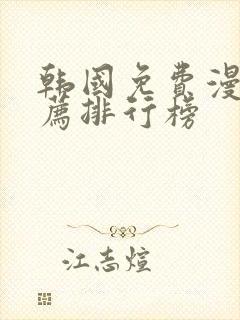 韩国免费漫
荐排行榜
江志煊